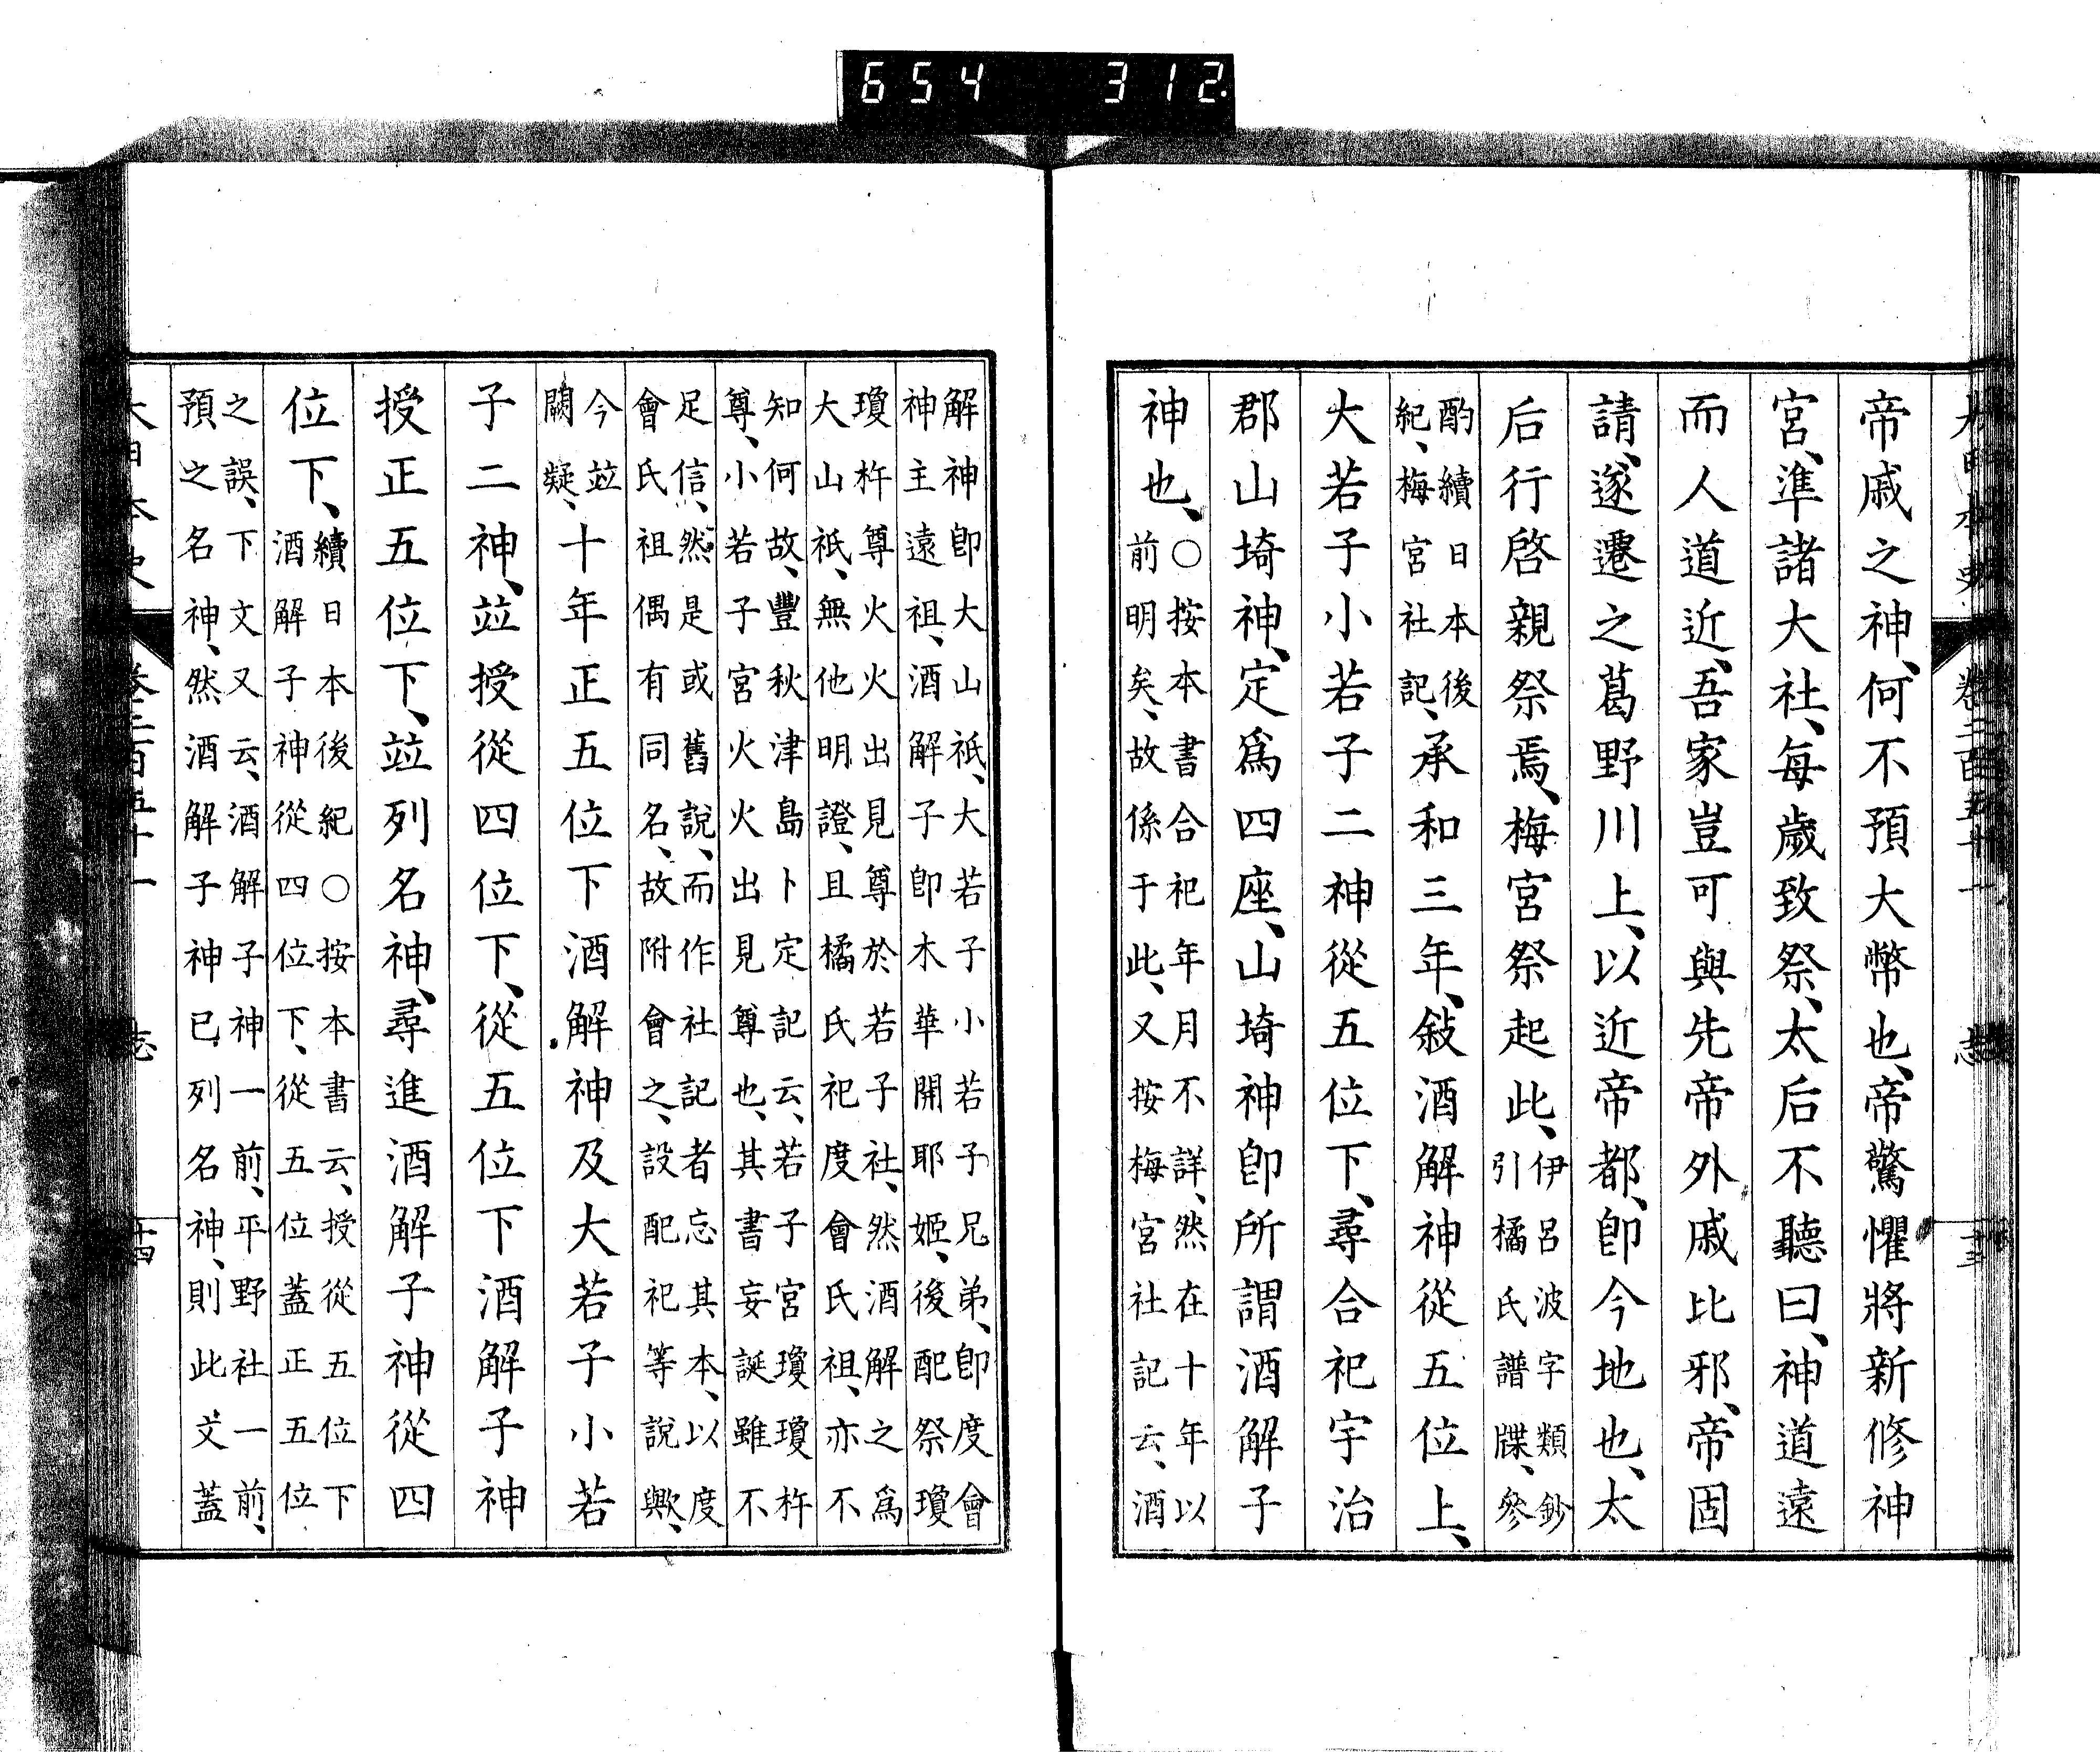 654 312.
帝戚之神、何不預大幣也、帝驚懼將新修神
宮、準諸大社、每歲致祭、太后不聽曰、神道遠
而人道近、吾家豈可與先帝外戚比邪、帝固
請、遂遷之葛野川上、以近帝都、卽今地也、太
后行啓親祭焉、梅宮祭起此、伊呂波字類鈔
引橘氏譜牒、參
酌續日本後
紀、梅宮社記、承和三年、敍酒解神從五位上、
大若子小若子二神從五位下、尋合祀宇治
郡山埼神、定爲四座、山埼神卽所謂酒解子
神也、○按本書合祀年月不詳、然在十年以
前明矣、故係于此、又按梅宮社記云、酒
解神卽大山祇、大若子小若子兄弟、卽度會
神主遠祖、酒解子卽木華開耶姬、後配祭瓊
瓊杵尊火火出見尊於若子社、然酒解之爲
大山祇、無他明證、且橘氏祀度會氏祖、亦不
知何故、豐秋津島卜定記云、若子宮瓊瓊杵
尊、小若子宮火火出見尊也、其書妄誕雖不
足信、然是或舊說、而作社記者忘其本、以度
會氏祖偶有同名、故附會之、設配祀等說歟、
今竝
闕疑、十年正五位下酒解神及大若子小若
子二神、竝授從四位下、從五位下酒解子神
授正五位下、竝列名神、尋進酒解子神從四
位下、續日本後紀○按本書云、授從五位下
酒解子神從四位下、從五位蓋正五位
之誤、下文又云、酒解子神一前、平野社一前、
預之名神、然酒解子神已列名神、則此文蓋
大日本史 卷二百五十一 志 十四